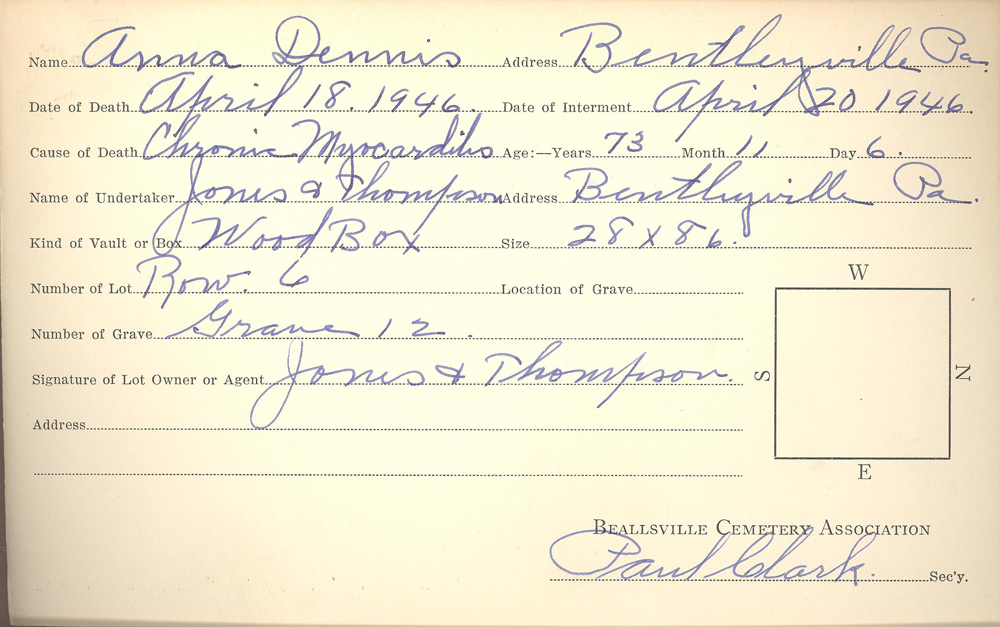 Name Anna Dennis Address Bentleyville Pa.
Date of Death April 18. 1946. Date of Interment April 20 1946.
Cause of Death Chronic Myocarditis Age:—Years 73 Month 11 Day 6.
Name of Undertaker Jones & Thompson Address Bentleyville Pa.
Kind of Vault or Box Wood Box Size 28 x 86.
Number of Lot Row. 6 Location of Grave
W
Number of Grave Grave 12.
Signature of Lot Owner or Agent Jones & Thompson.
S N
Address
E
BEALLSVILLE CEMETERY ASSOCIATION
Paul Clark. Sec'y.